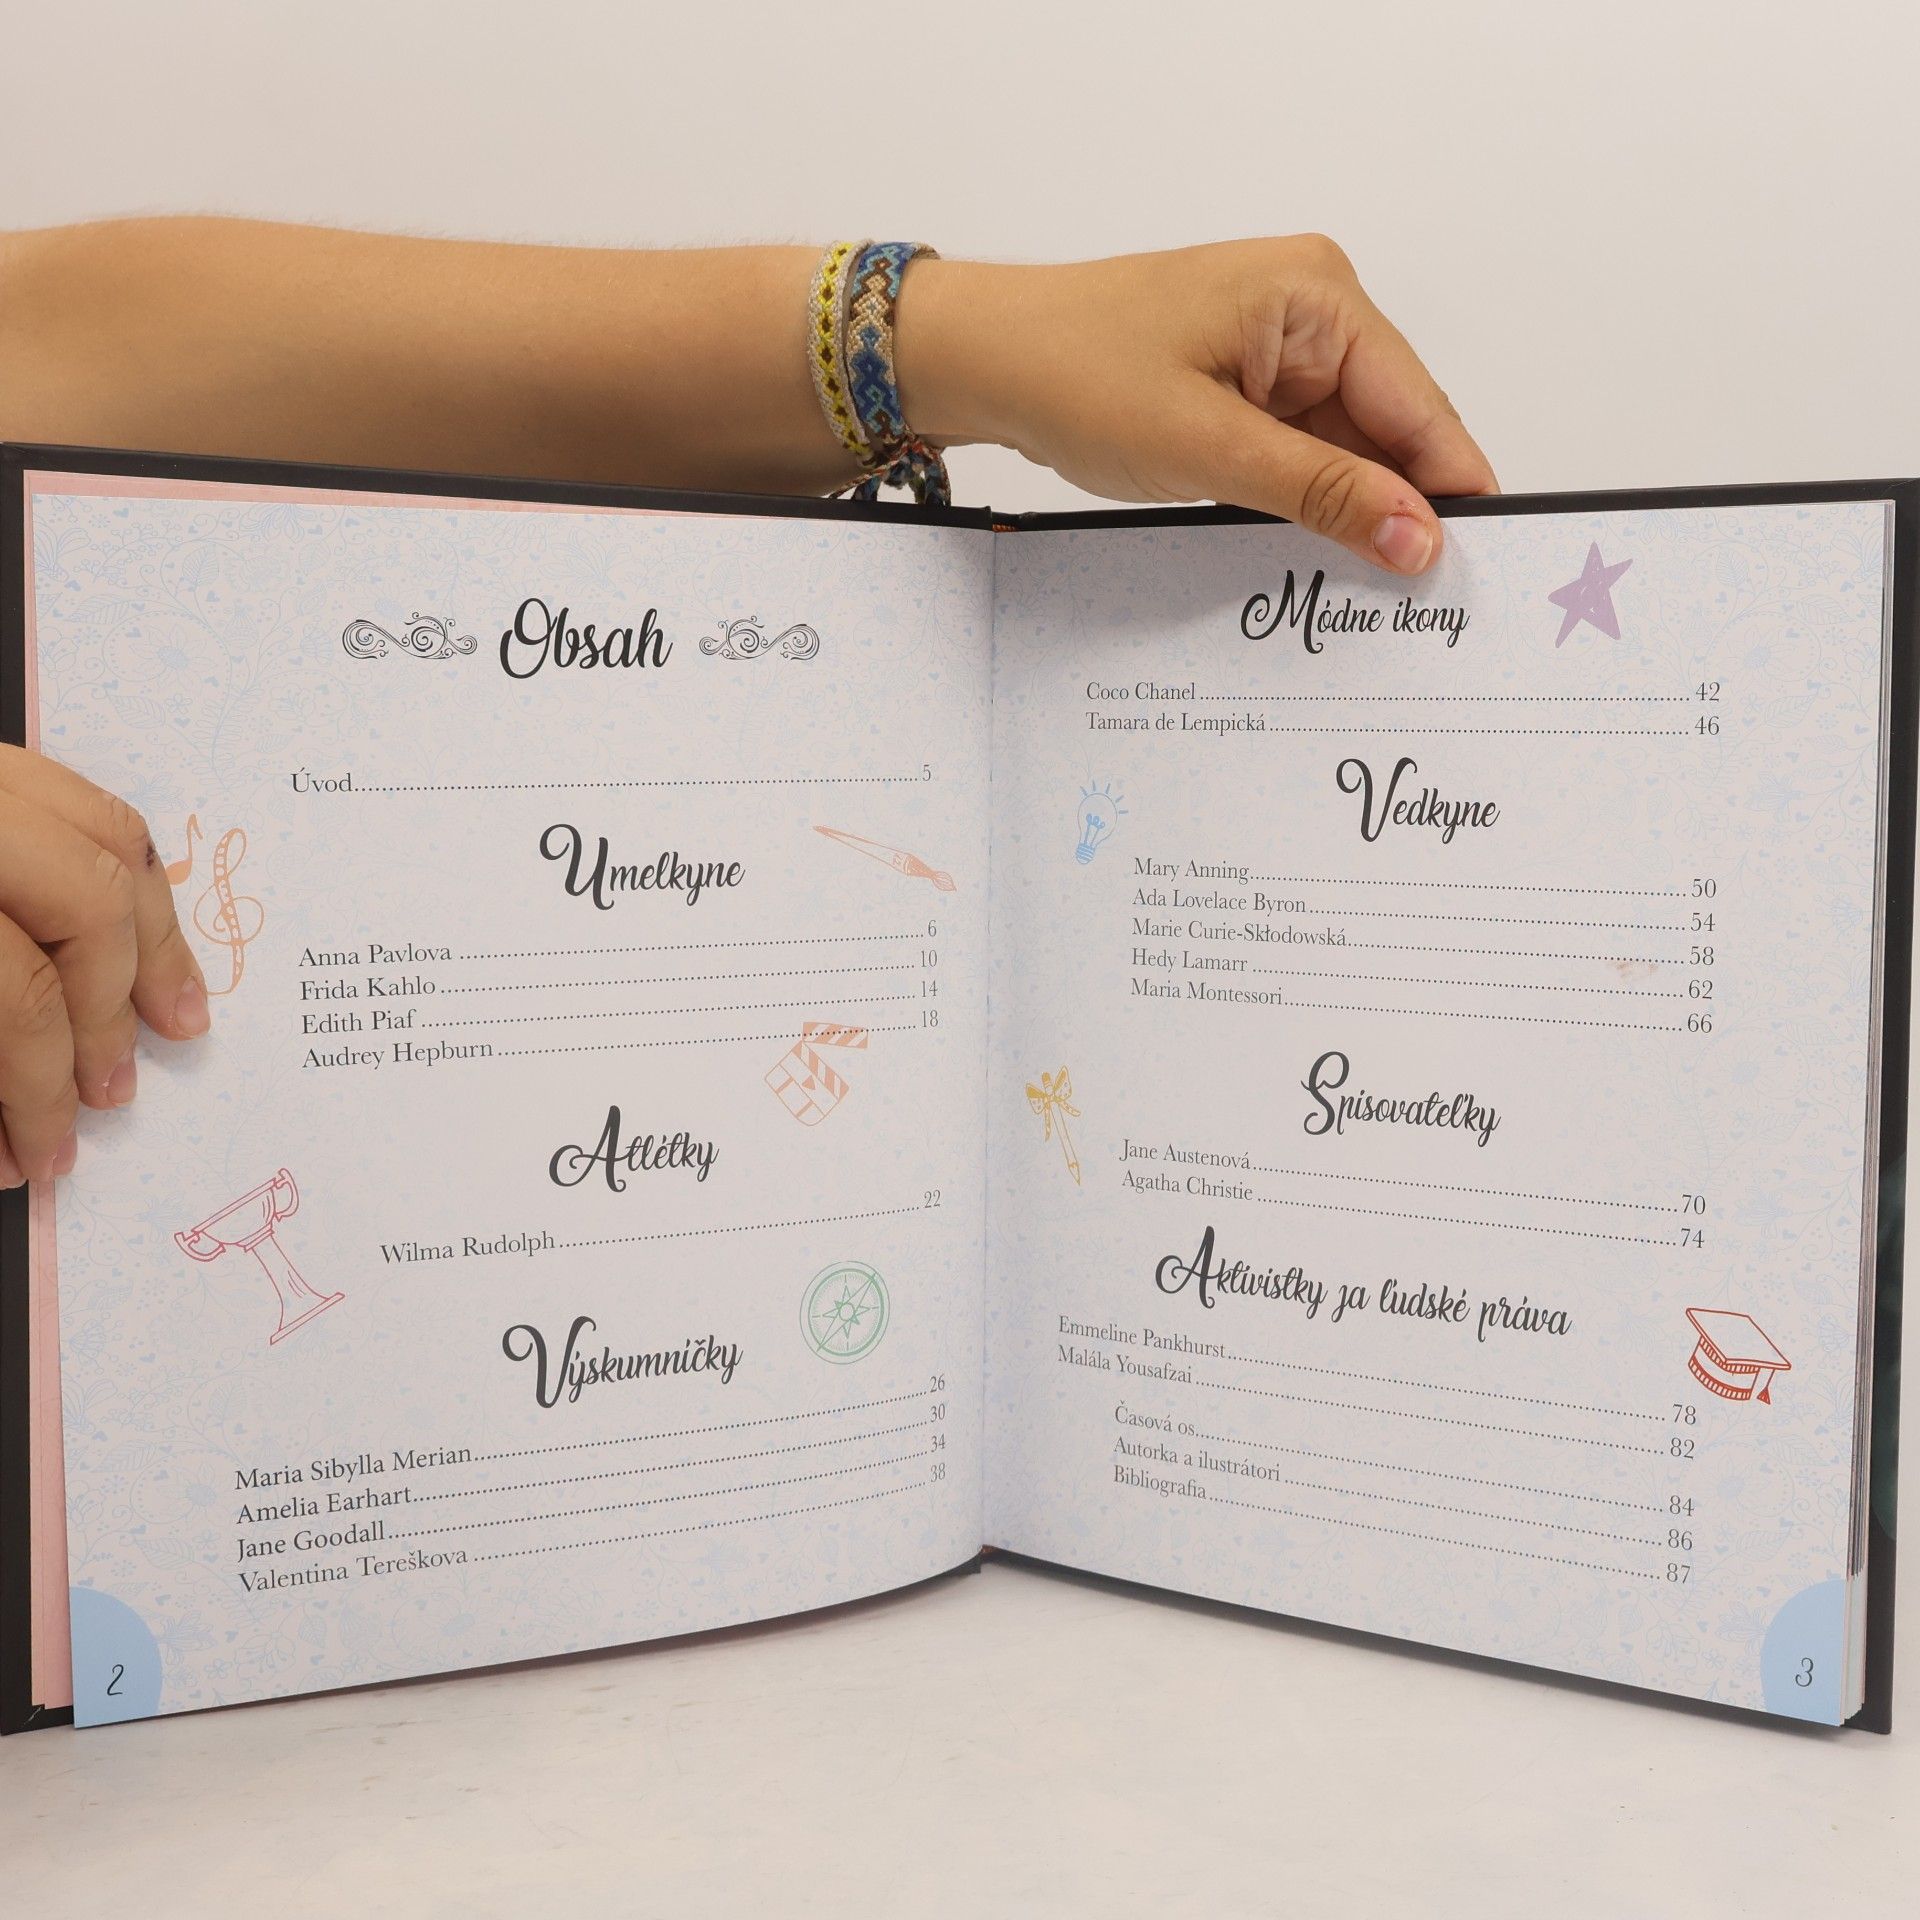 Obsah
Úvod 5
Umelkyne
Anna Pavlova 6
Frida Kahlo 10
Edith Piaf 14
Audrey Hepburn 18
Atlétky
Wilma Rudolph 22
Výskumníčky
Maria Sibylla Merian 26
Amelia Earhart 30
Jane Goodall 34
Valentina Tereškova 38
2
Módne ikony
Coco Chanel 42
Tamara de Lempická 46
Vedkyne
Mary Anning 50
Ada Lovelace Byron 54
Marie Curie-Skłodowská 58
Hedy Lamarr 62
Maria Montessori 66
Spisovateľky
Jane Austenová 70
Agatha Christie 74
Aktivistky za ľudské práva
Emmeline Pankhurst 78
Malála Yousafzai 82
Časová os 84
Autorka a ilustrátori 86
Bibliografia 87
3